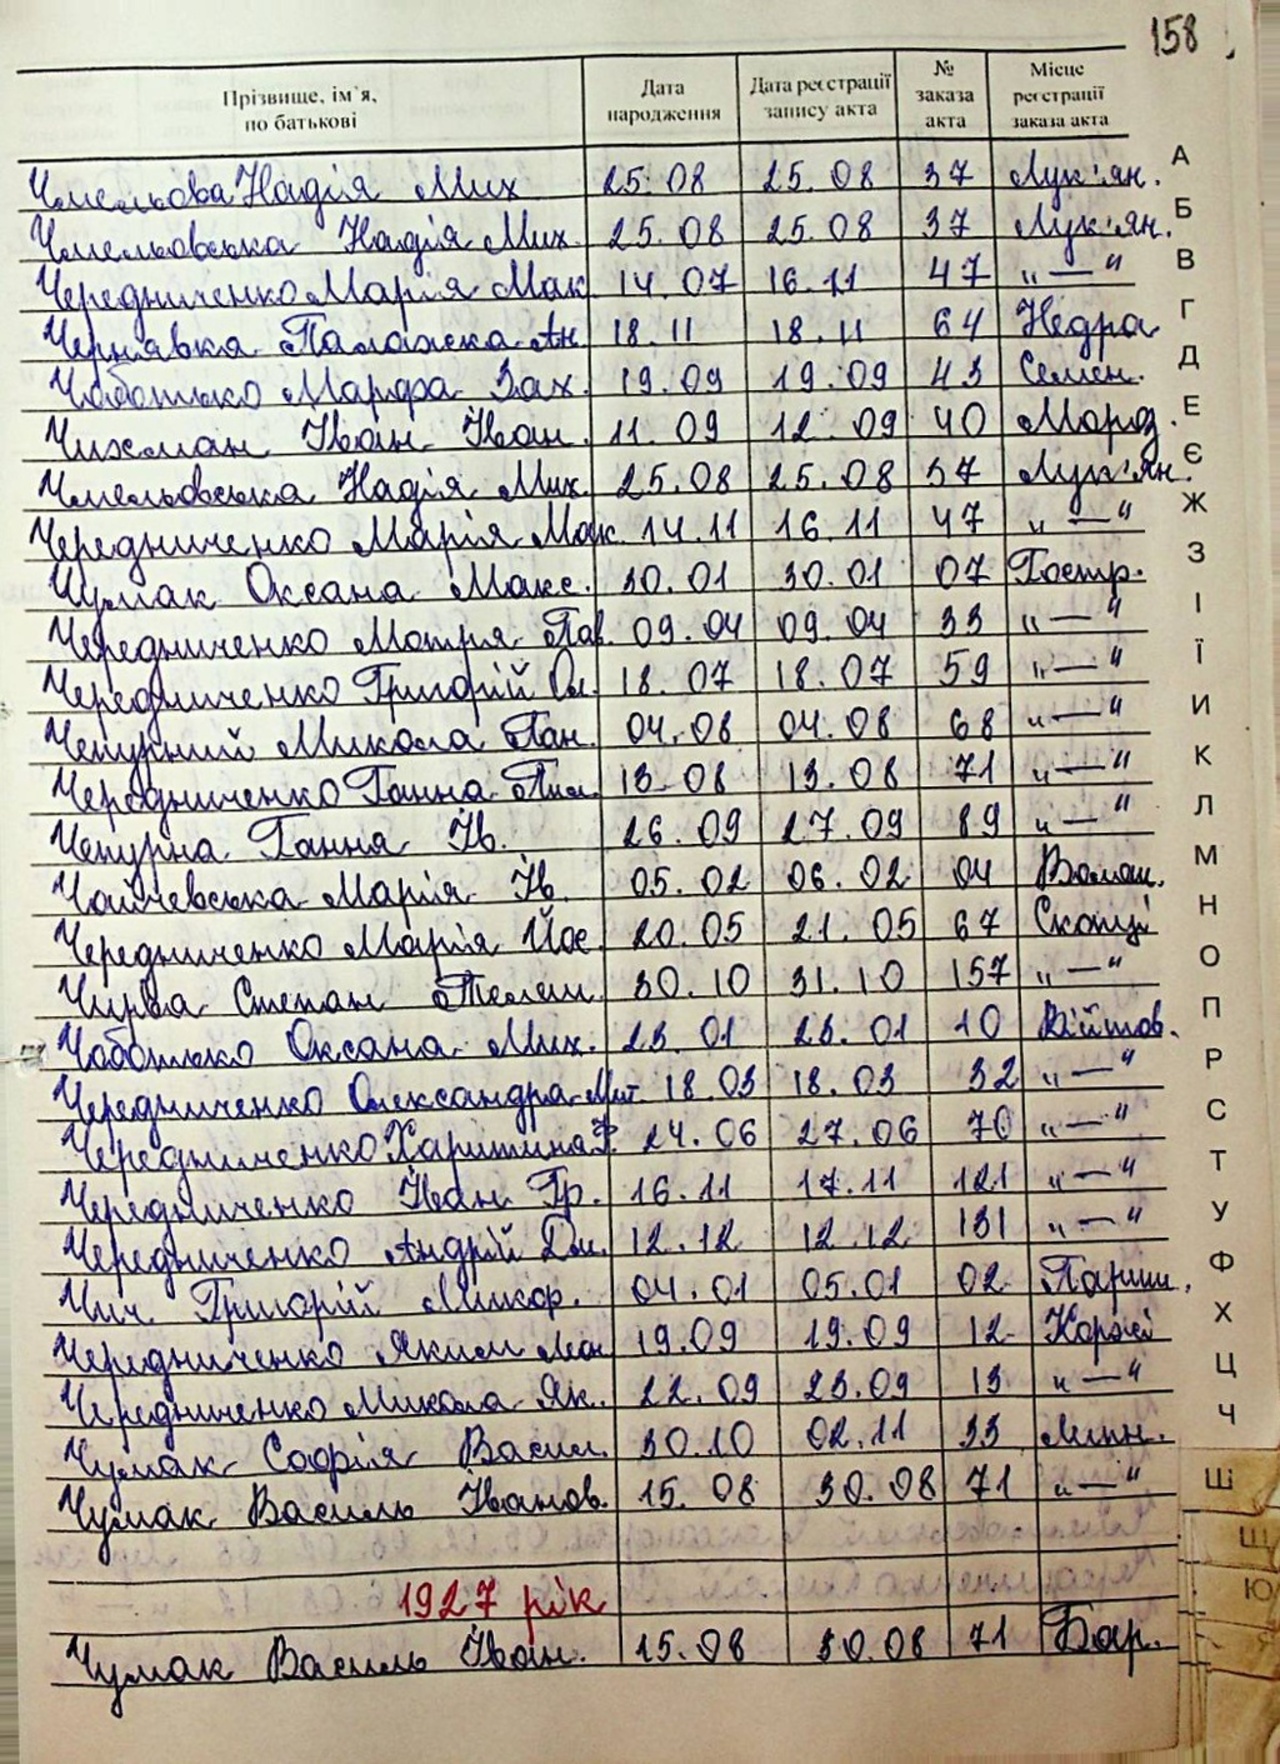 158
Прізвище, ім'я, по батькові | Дата народження | Дата реєстрації запису акта | № заказа акта | Місце реєстрації заказа акта
Чмельова Надія Мих 25.08 25.08 37 Лук'ян. А
Чмельовська Надія Мих. 25.08 25.08 37 Лук'ян. Б
Чередниченко Марія Мак 14.07 16.11 47 „—“ В
Чернявка Палажка Ан. 18.11 18.11 64 Недра Г
Чоботько Марфа Зах. 19.09 19.09 43 Семен. Д
Чихман Іван Іван. 11.09 12.09 40 Мороз. Е
Чмельовська Надія Мих. 25.08 25.08 37 Лук'ян. Є
Чередниченко Марія Мак. 14.11 16.11 47 „—“ Ж
Чумак Оксана Макс. 30.01 30.01 07 Гостр. З
Чередниченко Мотря Пав. 09.04 09.04 33 „—“ І
Чередниченко Григорій Ол. 18.07 18.07 59 „—“ Ї
Чепурний Микола Пан. 04.08 04.08 68 „—“ И
Чередниченко Ганна Пил. 13.08 13.08 71 „—“ К
Чепурна Ганна Ів. 26.09 27.09 89 „—“ Л
Марія Ів. 05.02 06.02 04 Волош. М
Чередниченко Марія Йос. 20.05 21.05 67 Скопці Н
Чирва Степан 30.10 31.10 157 „—“ О
Чоботько Оксана Мих. 23.01 23.01 10 Війтов. П
Чередниченко Олександра Мит. 18.03 18.03 32 „—“ Р
Чередниченко Харитина Ф. 24.06 27.06 70 „—“ С
Чередниченко Іван Гр. 16.11 17.11 121 „—“ Т
Чередниченко Андрій Дм. 12.12 12.12 131 „—“ У
Чич. Григорій Микиф. 04.01 05.01 02 Париш. Ф
Чередниченко Яким 19.09 19.09 12 Коржі Х
Чередниченко Микола Як. 22.09 23.09 13 „—“ Ц
Чумак Софія Васил. 30.10 02.11 33 Липн. Ч
Чумак Василь Іванов. 15.08 30.08 71 „—“ Ш
Щ
1927 рік Ю
Чумак Василь Іван. 15.08 30.08 71 Бар.